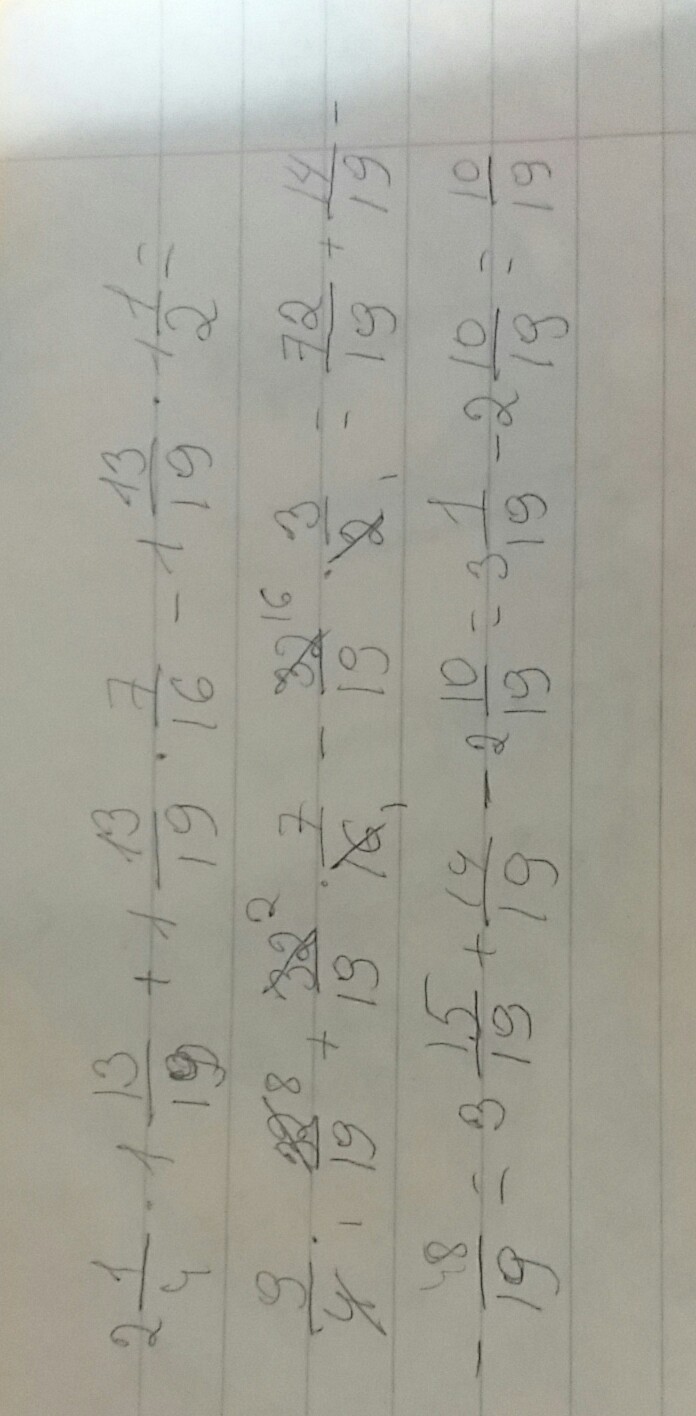 2 1/4 · 1 13/19 + 1 13/19 · 7/16 - 1 13/19 · 1 1/2 =
9/4 1 · 32 8/19 + 32 2/19 · 7/16 1 - 32 16/19 · 3/2 1 = 72/19 + 14/19 -
- 48/19 = 3 15/19 + 14/19 - 2 10/19 = 3 1/19 - 2 10/19 = 10/19